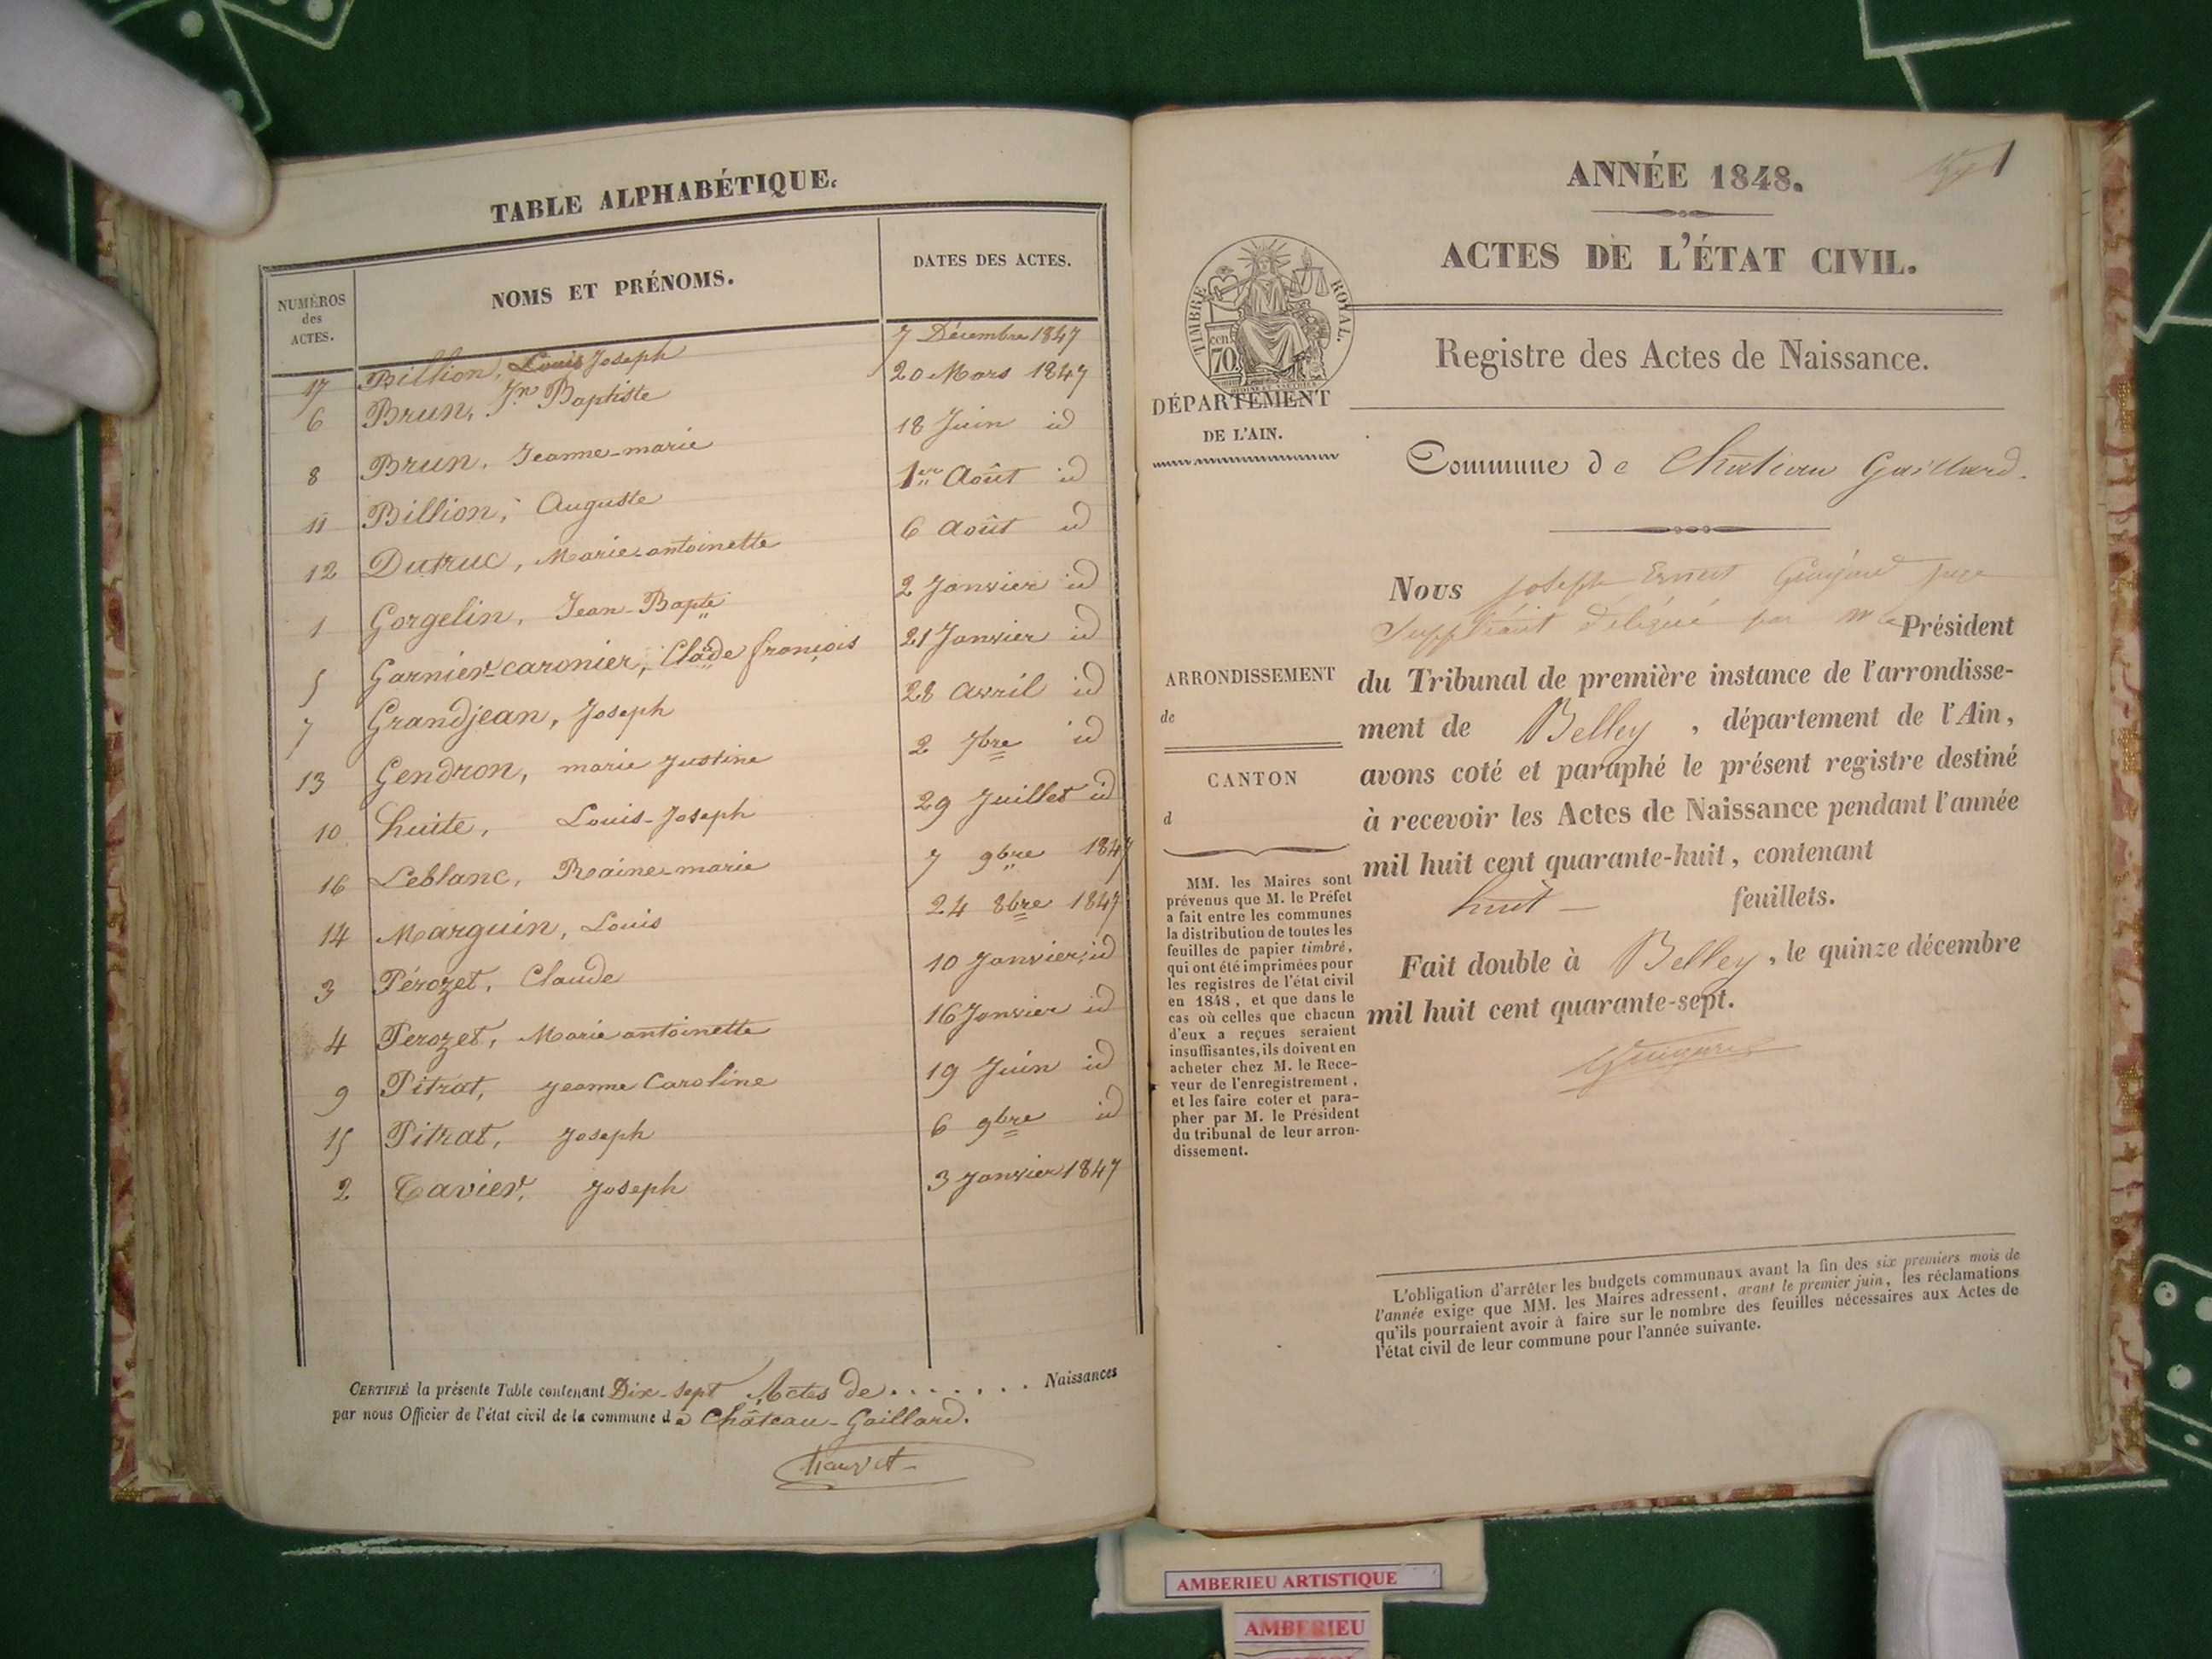 TABLE ALPHABÉTIQUE.
NUMÉROS des ACTES. NOMS ET PRÉNOMS. DATES DES ACTES.
17 Billion, Louis Joseph 7 Décembre 1847
6 Brun, Jn Baptiste 20 Mars 1847
8 Brun, Jeanne-marie 18 Juin id
11 Billion, Auguste 1er Août id
12 Dutruc, Marie-antoinette 6 Août id
1 Gorgelin, Jean-Bapte 2 Janvier id
5 Garnier-caronier, Clade françois 21 Janvier id
7 Grandjean, Joseph 28 Avril id
13 Gendron, marie Justine 2 7bre id
10 huite, Louis-Joseph 29 Juillet id
16 Leblanc, Raine-marie 7 9bre 1847
14 Marguin, Louis 24 8bre 1847
3 Pérozet, Claude 10 Janvier id
4 Perozet, Marie antoinette 16 Janvier id
9 Pitrat, Jeanne Caroline 19 Juin id
15 Pitrat, Joseph 6 9bre id
2 Tavier, Joseph 3 Janvier 1847
CERTIFIÉ la présente Table contenant Dix-sept Actes de . . . . . . . Naissances
par nous Officier de l'état civil de la commune de Château-Gaillard.
ANNÉE 1848.
1
ACTES DE L'ÉTAT CIVIL.
TIMBRE ROYAL.
cen. 70
Registre des Actes de Naissance.
DÉPARTEMENT
DE L'AIN.
Commune de Chateau Gaillard.
Nous Joseph Ernest juge
Suppléant délégué par mr le Président
du Tribunal de première instance de l'arrondisse-
ment de Belley, département de l'Ain,
avons coté et paraphé le présent registre destiné
à recevoir les Actes de Naissance pendant l'année
mil huit cent quarante-huit, contenant
huit — feuillets.
Fait double à Belley, le quinze décembre
mil huit cent quarante-sept.
ARRONDISSEMENT
de
CANTON
d
MM. les Maires sont
prévenus que M. le Préfet
a fait entre les communes
la distribution de toutes les
feuilles de papier timbré,
qui ont été imprimées pour
les registres de l'état civil
en 1848, et que dans le
cas où celles que chacun
d'eux a reçues seraient
insuffisantes, ils doivent en
acheter chez M. le Rece-
veur de l'enregistrement,
et les faire coter et para-
pher par M. le Président
du tribunal de leur arron-
dissement.
L'obligation d'arrêter les budgets communaux avant la fin des six premiers mois de
l'année exige que MM. les Maires adressent, avant le premier juin, les réclamations
qu'ils pourraient avoir à faire sur le nombre des feuilles nécessaires aux Actes de
l'état civil de leur commune pour l'année suivante.
AMBERIEU ARTISTIQUE
AMBERIEU